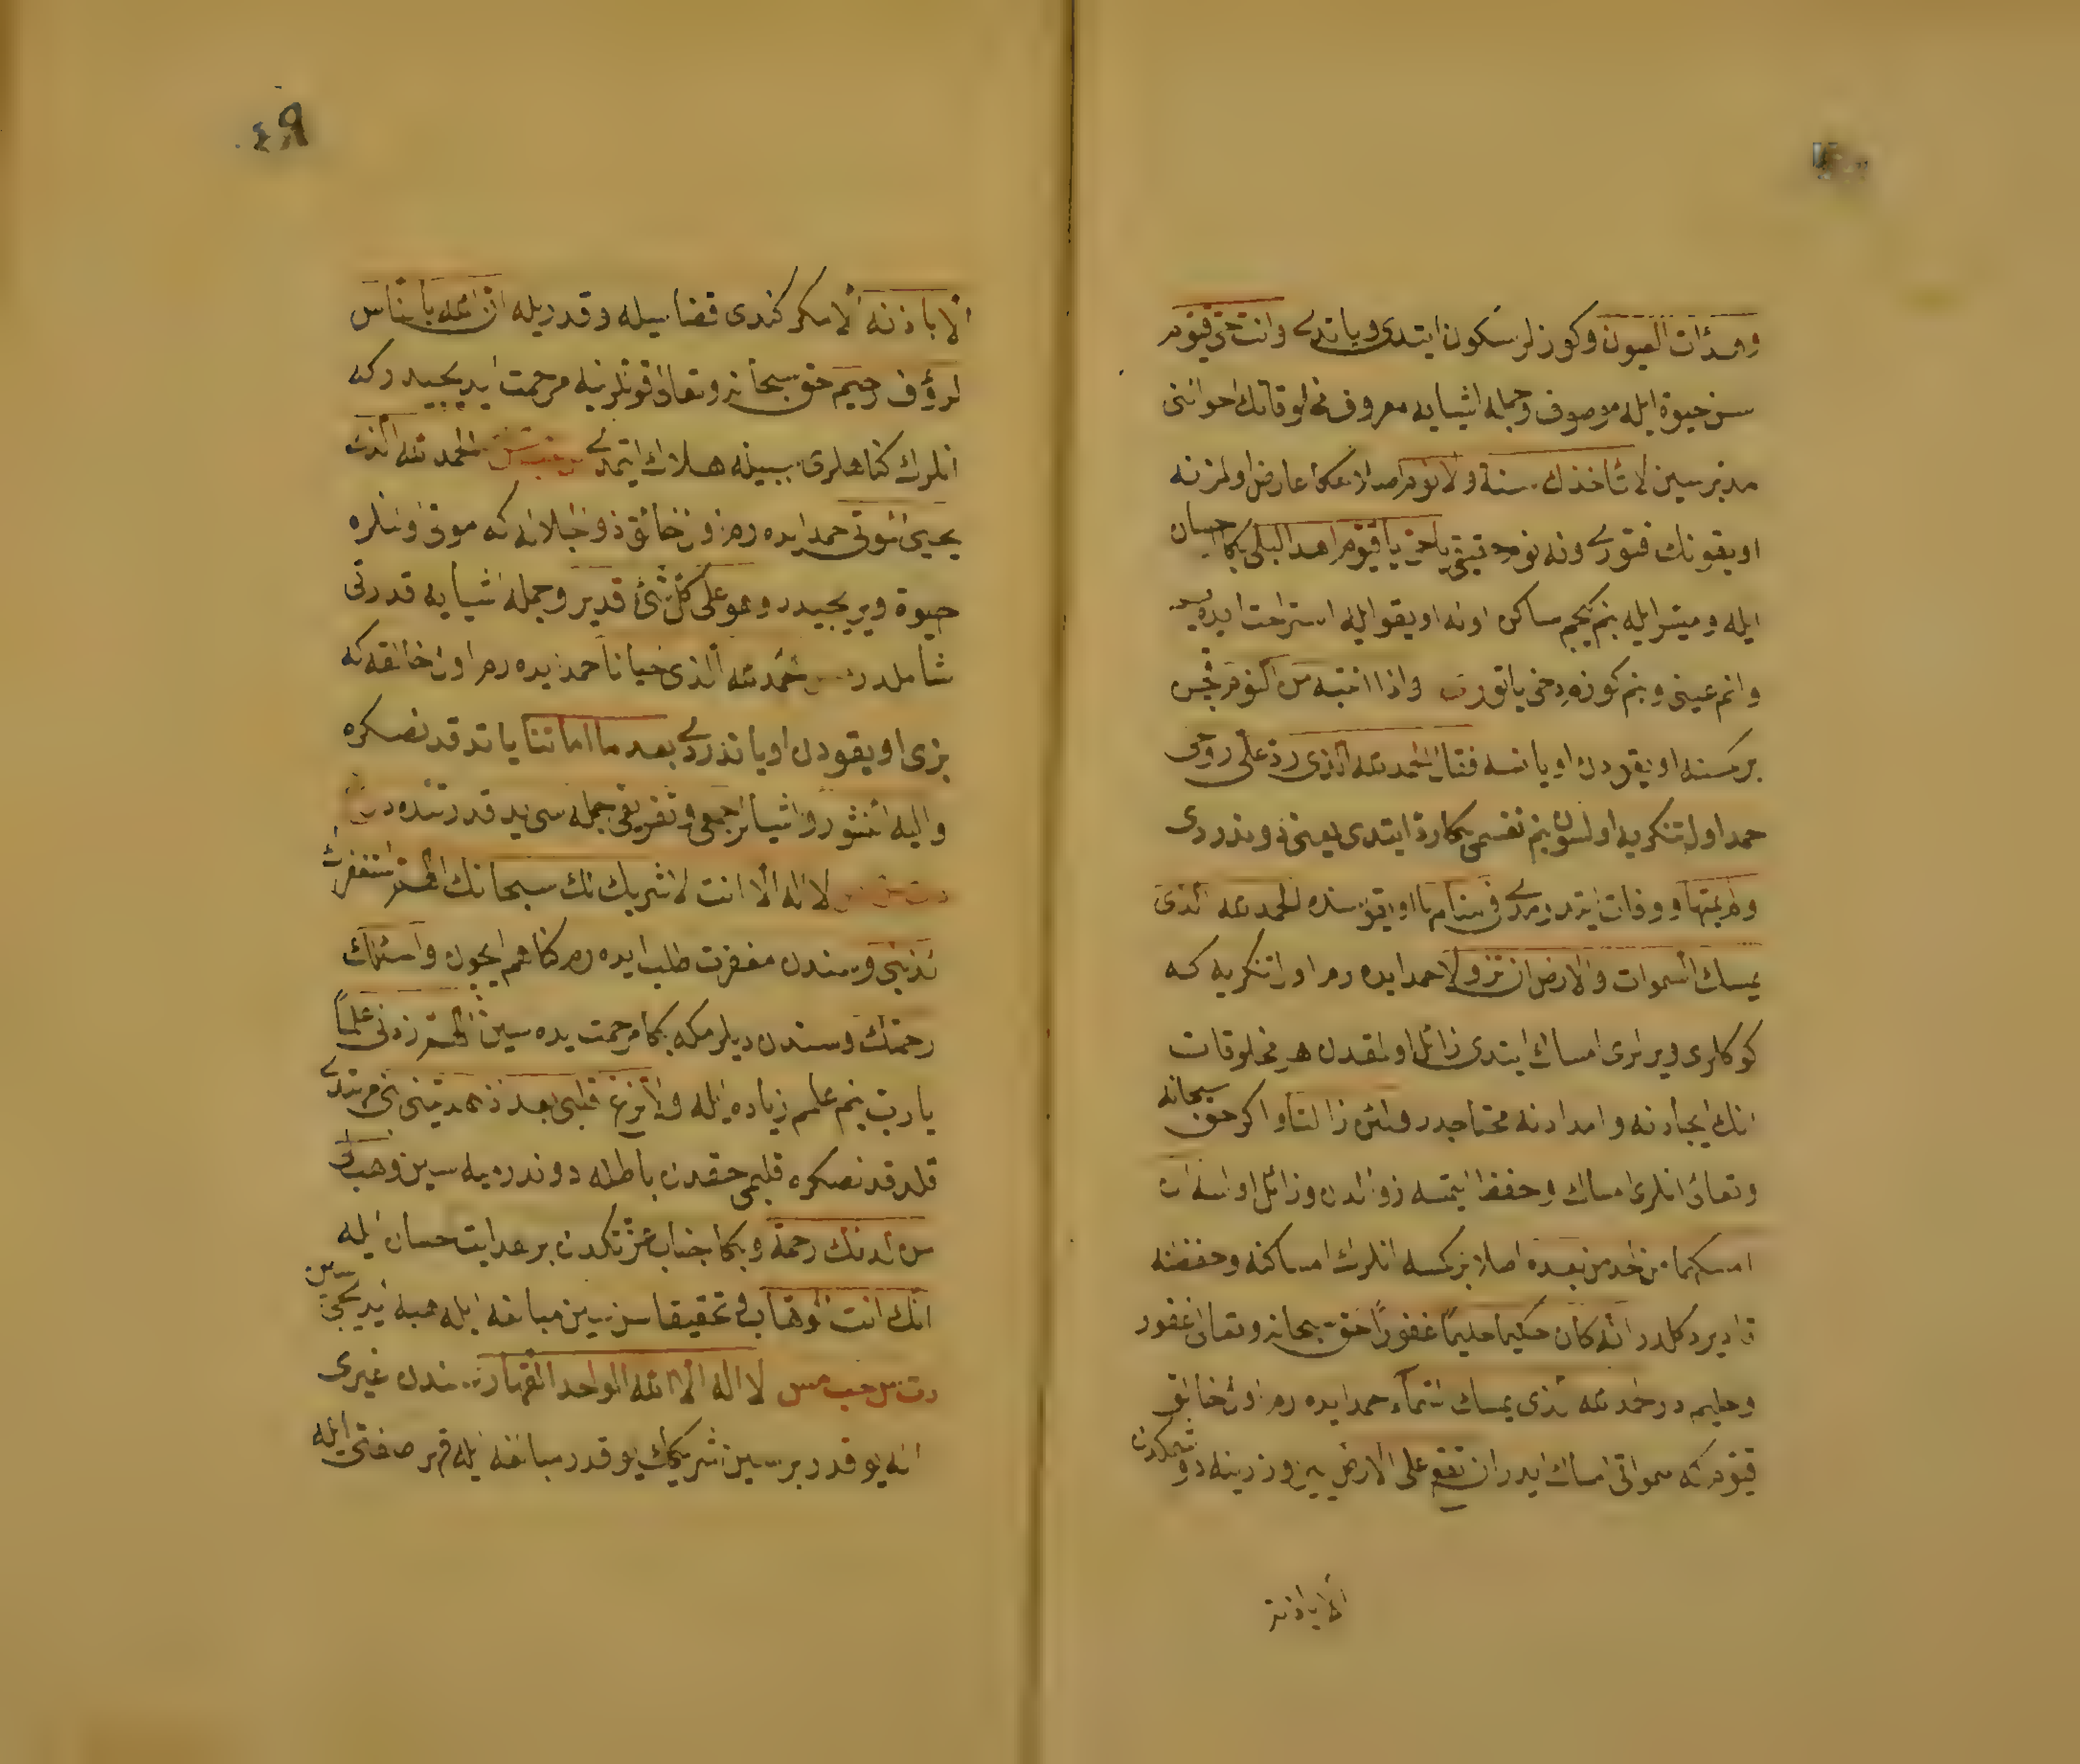 وهدأت العيون وكوزلر سكون ايتدى وياتدى وانت حى قيوم
سن حيوة ايله موصوف وجمله اشيايه معروف مخلوقاتك احوالنى
مدبرسين لا تأخذك سنة ولا نوم اصلا سكا عارض اولمز نه
اويقونك فتورى ونه نوم ثقيل يا حى يا قيوم اهد ليلى بكا احسان
ايله وميسر ايله بنم كيجم ساكن اوله اويقو ايله استراحت ايدهيم
وانم عينى وبنم كوزم دخى ياتور واذا انتبه من النوم
بر كمسنه اويقودن اويانسه فقال الحمد لله الذى رد على روحى
حمد اول تنكريه اولسون بنم نفسمى بكا رد ايتدى يعنى دوندردى
ولم يمتها ووفات ايتدرمدى فى منامها اويقوسنده الحمد لله الذى
يمسك السموات والارض ان تزولا حمد ايده رم اول تنكريه كه
كوكلرى ويرلرى امساك ايتدى زائل اولمقدن هر مخلوقات
انك ايجادنه وامدادنه محتاجدر ولئن زالتا واكر حق سبحانه
وتعالى انلرى امساك وحفظ ايتمسه زوالدن وزائل اولسه ان
امسكهما من احد من بعده اصلا بر كمسه انلرك امساكنه وحفظنه
قادر دكلدر انه كان حكيما حليما غفورا حق سبحانه وتعالى غفور
وحليم در الحمد لله الذى يمسك السماء حمد ايده رم اول خالق
قيومه كه سمواتى امساك ايدر ان تقع على الارض ير اوزرينه دوشمكدن
الا باذنه
الا باذنه الا مكر كندى قضاسيله وقدريله ان الله بالناس
لرؤف رحيم حق سبحانه وتعالى قوللرينه مرحمت ايديجيدر كه
انلرك كناهلرى سببيله هلاك ايتمدى الحمد لله الذى
يحيى الموتى حمد ايده رم اول خالق ذو الجلاله كه موتى اولنلره
حيوة ويريجيدر وهو على كل شئ قدير وجمله اشيايه قدرتى
شاملدر الحمد لله الذى احيانا حمد ايده رم اول خالقه كه
بزى اويقودن اوياندردى بعد ما اماتنا ياتدقدنصكره
واليه النشور واشيانك جمعى وتفريقى جمله سى يد قدرتنده در
لا اله الا انت لا شريك لك سبحانك اللهم استغفرك
لذنبى وسندن مغفرت طلب ايده رم كناهم ايچون واسئلك
رحمتك وسندن ديلرم كه بكا مرحمت ايده سين اللهم زدنى علما
يا رب بنم علمم زياده ايله ولا تزغ قلبى بعد اذ هديتنى بنى مهتدى
قلدقدنصكره قلبمى حقدن باطله دوندرميه سين وهب لى
من لدنك رحمة وبكا جناب عزتكدن بر هدايت احسان ايله
انك انت الوهاب تحقيقا سن سين مبالغه ايله هبه ايديجى سن
لا اله الا الله الواحد القهار سندن غيرى
اله يوقدر بر سين شريكك يوقدر مبالغه ايله قهر صفتى ايله